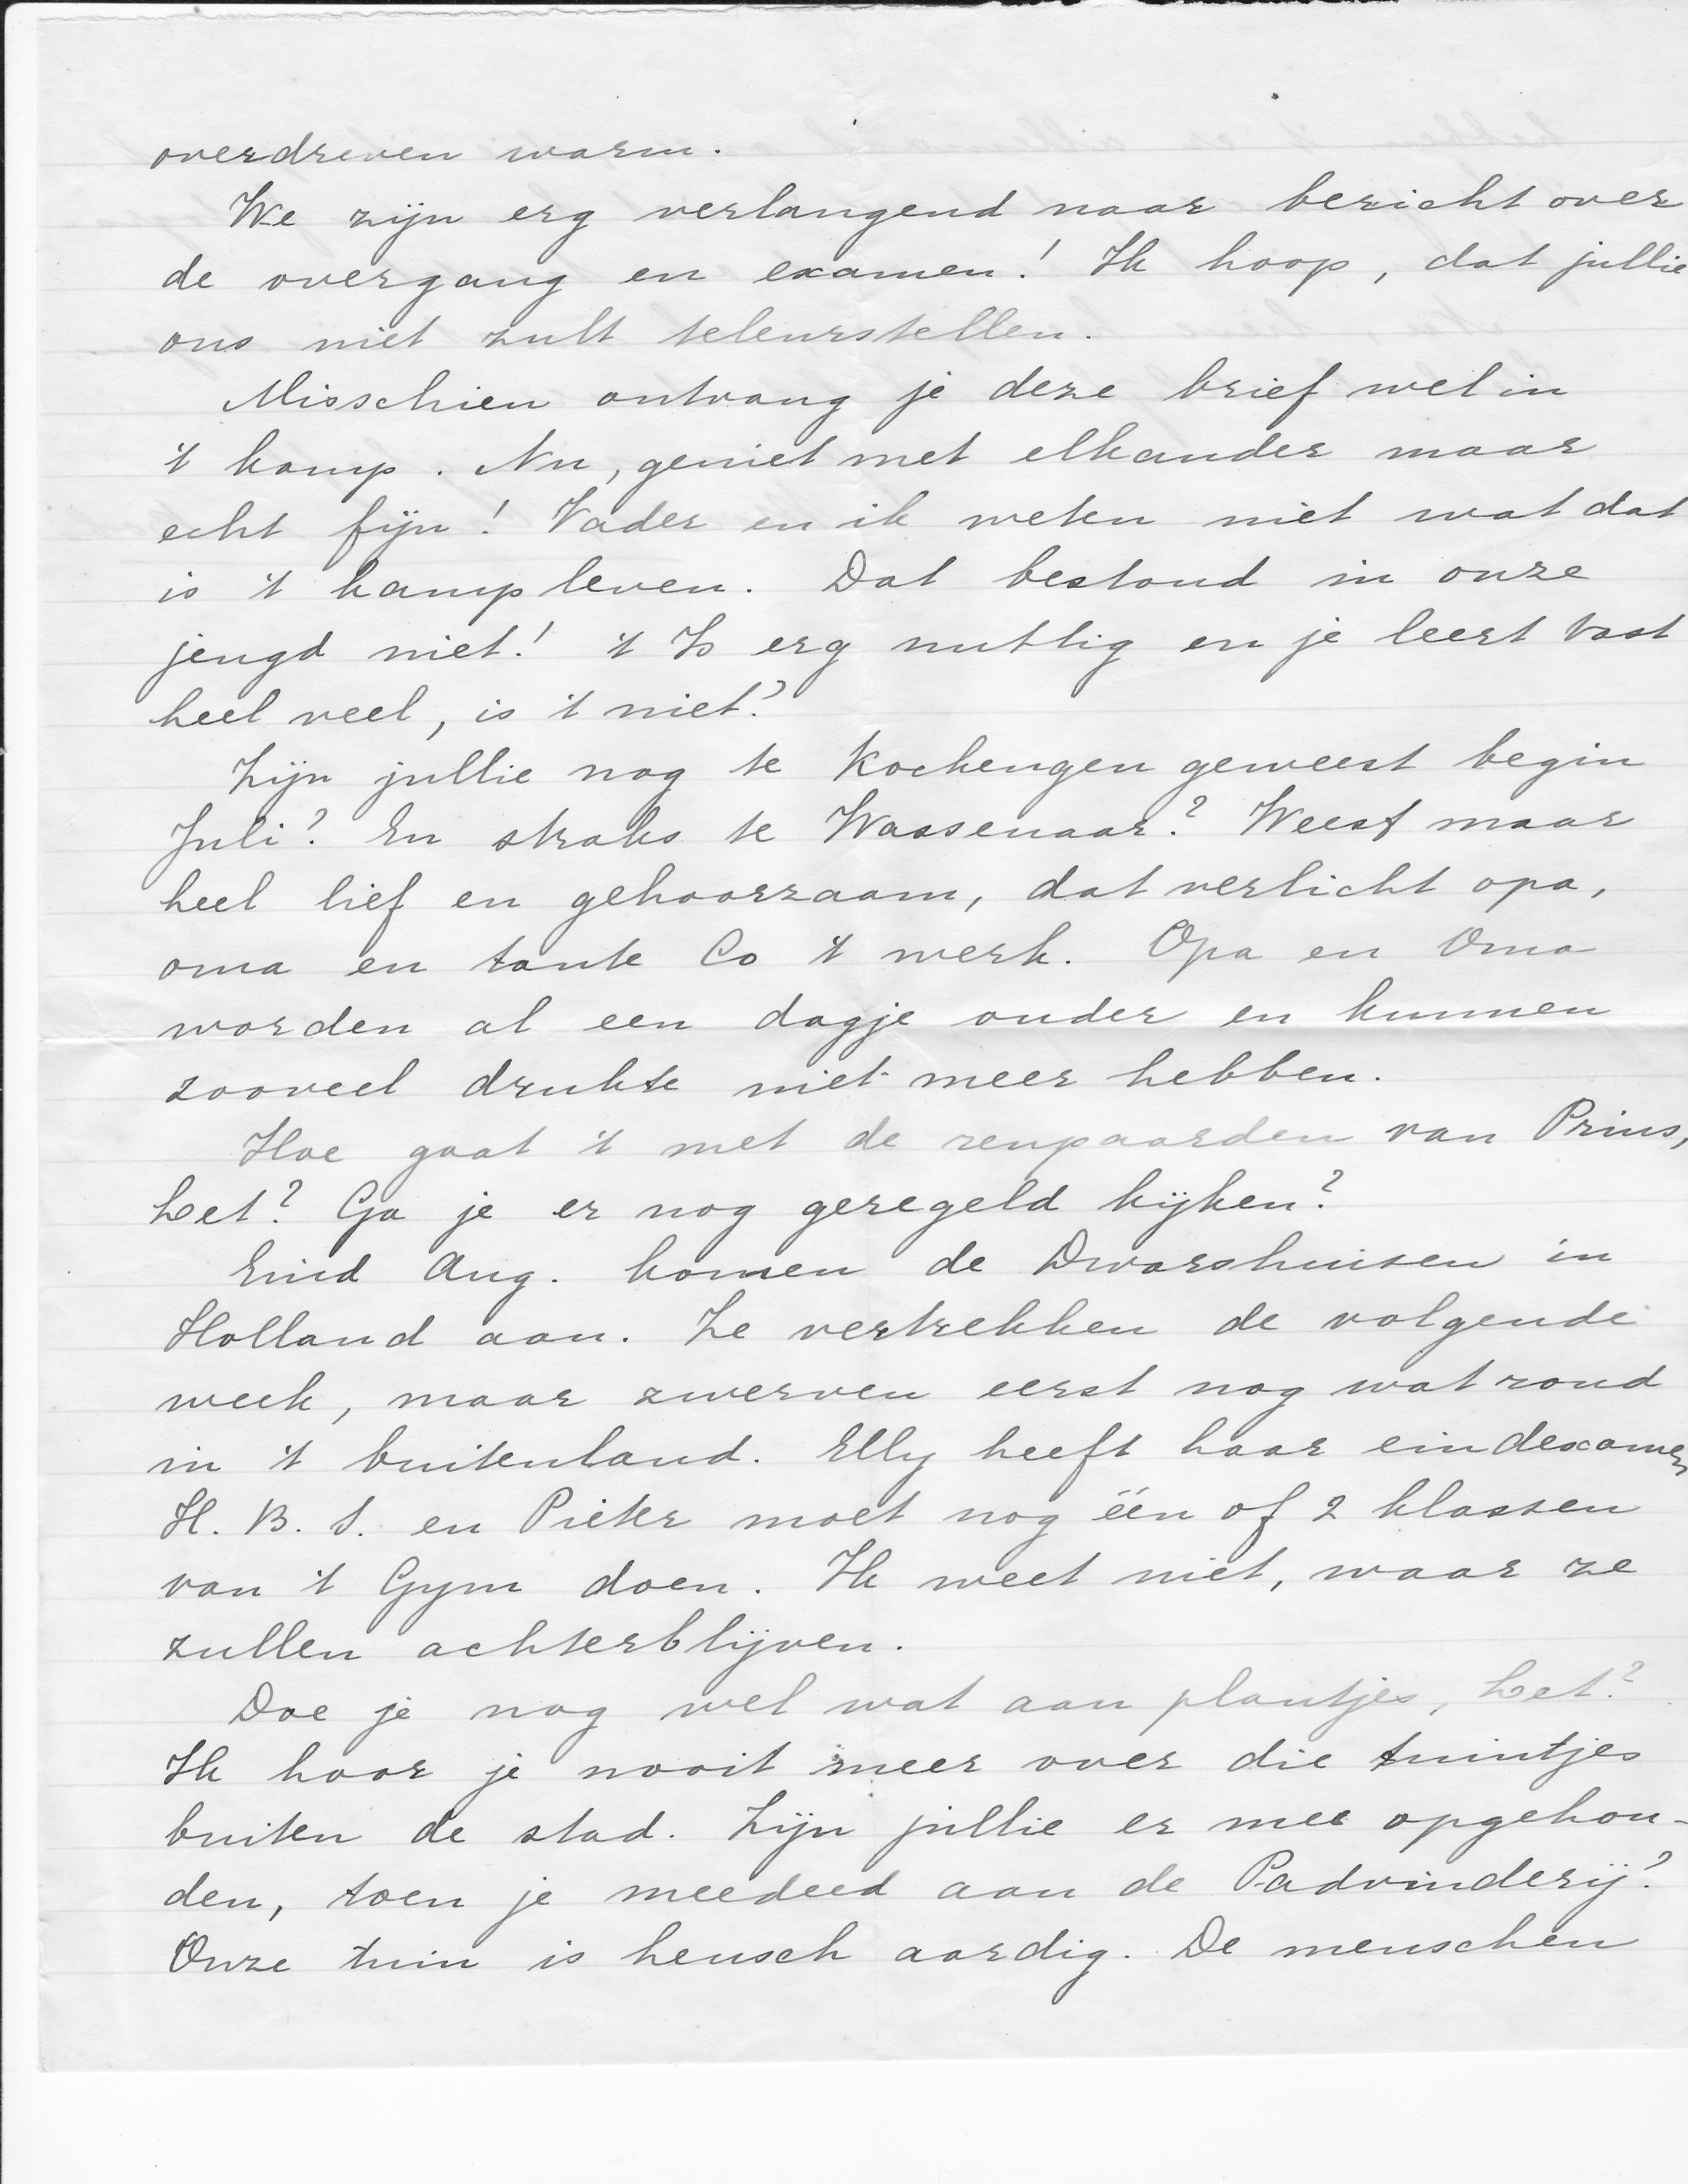 overdreven warm.
We zijn erg verlangend naar bericht over
de overgang en examen! Ik hoop, dat jullie
ons niet zult teleurstellen.
Misschien ontvang je deze brief wel in
't kamp. Nu, geniet met elkander maar
echt fijn! Vader en ik weten niet wat dat
is 't kampleven. Dat bestond in onze
jeugd niet! 't Is erg nuttig en je leert vast
heel veel, is 't niet?
Zijn jullie nog te Kockengen geweest begin
Juli? En straks te Wassenaar? Weest maar
heel lief en gehoorzaam, dat verlicht opa,
oma en tante Co 't werk. Opa en Oma
worden al een dagje ouder en kunnen
zooveel drukte niet meer hebben.
Hoe gaat 't met de renpaarden van Prins,
Let? Ga je er nog geregeld kijken?
Eind Aug. komen de Dwarshuizen in
Holland aan. Ze vertrekken de volgende
week, maar zwerven eerst nog wat rond
in 't buitenland. Elly heeft haar eindexamen
H. B. S. en Pieter moet nog één of 2 klassen
van 't Gym doen. Ik weet niet, waar ze
zullen achterblijven.
Doe je nog wel wat aan plantjes, Let?
Ik hoor je nooit meer over die tuintjes
buiten de stad. Zijn jullie er mee opgehou-
den, toen je meedeed aan de Padvinderij?
Onze tuin is heusch aardig. De menschen